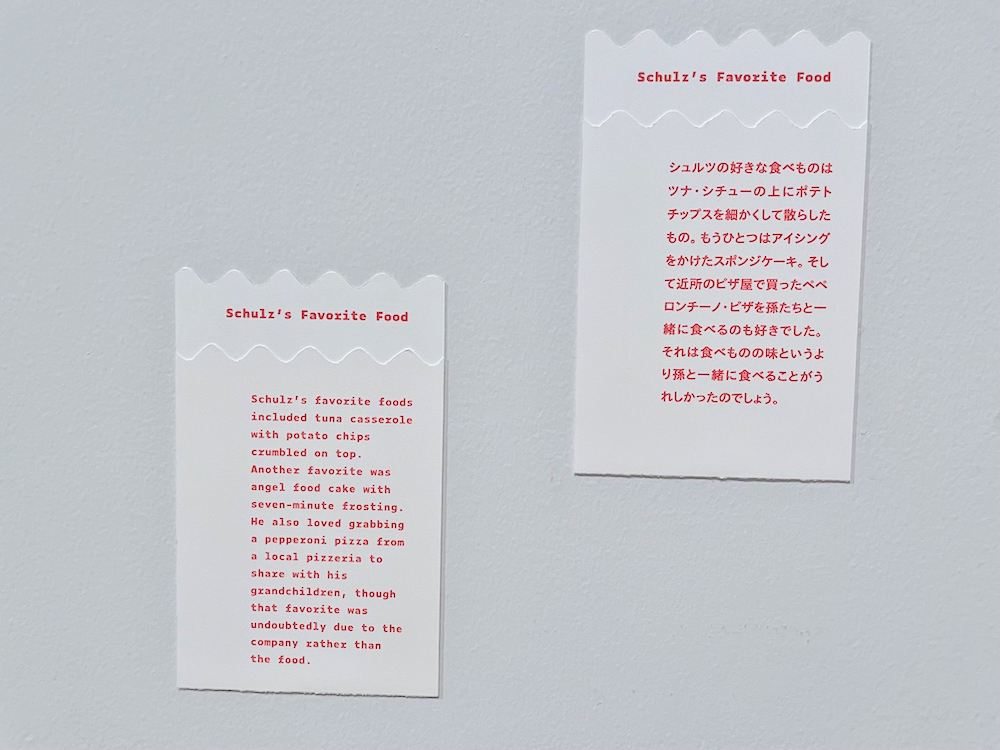 Schulz's Favorite Food
Schulz's favorite foods
included tuna casserole
with potato chips
crumbled on top.
Another favorite was
angel food cake with
seven-minute frosting.
He also loved grabbing
a pepperoni pizza from
a local pizzeria to
share with his
grandchildren, though
that favorite was
undoubtedly due to the
company rather than
the food.
Schulz's Favorite Food
シュルツの好きな食べものは
ツナ・シチューの上にポテト
チップスを細かくして散らした
もの。もうひとつはアイシング
をかけたスポンジケーキ。そし
て近所のピザ屋で買ったペペ
ロンチーノ・ピザを孫たちと一
緒に食べるのも好きでした。
それは食べものの味というよ
り孫と一緒に食べることがう
れしかったのでしょう。